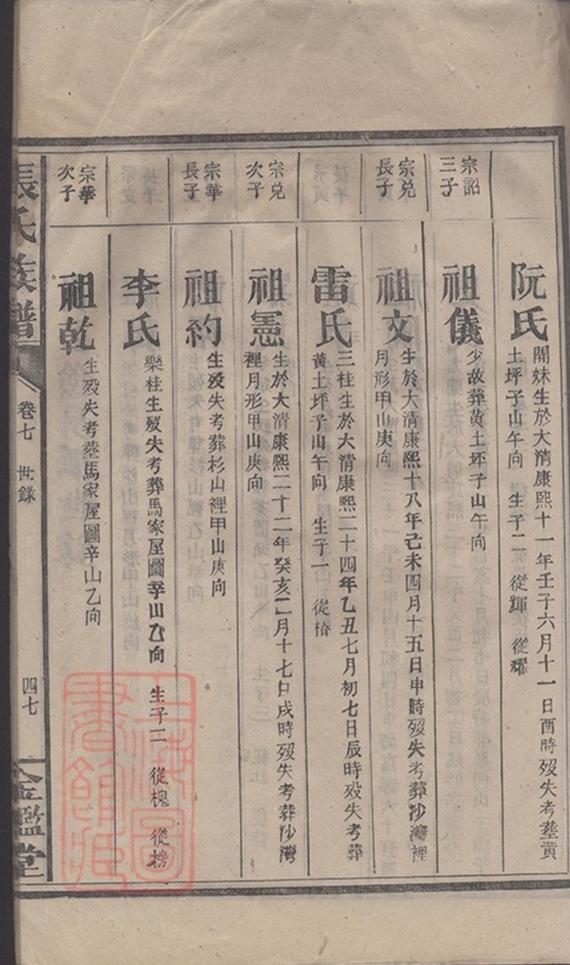 阮氏
關妹生於大清康熙十一年壬子六月十一日酉時殁失考塟黄
土坪子山午向 生子二 從輝 從耀
宗詔
三子
祖儀
少故葬黄土坪子山午向
宗兑
長子
祖文
生於大清康熙十八年己未四月十五日申時殁失考葬沙灣裡
月形甲山庚向
雷氏
三桂生於大清康熙二十四年乙丑七月初七日辰時殁失考葬
黄土坪子山午向 生子一 從椿
宗兑
次子
祖憲
生於大清康熙二十二年癸亥二月十七日戌時殁失考葬沙灣
裡月形甲山庚向
宗華
長子
祖約
生殁失考葬杉山裡甲山庚向
李氏
樂桂生殁失考葬馬家屋圖辛山乙向 生子二 從槐 從榜
宗華
次子
祖乾
生殁失考塟馬家屋圖辛山乙向
張氏族譜
卷七 世錄
四七
金鑑堂